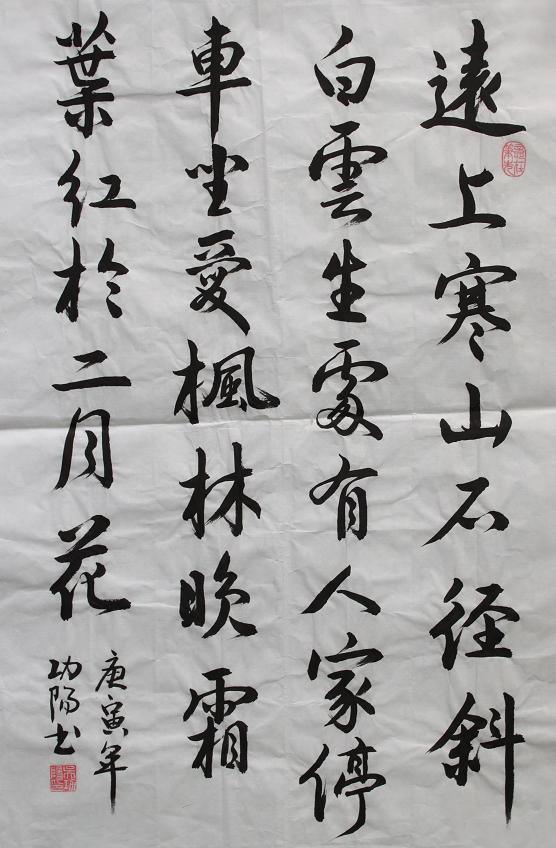 遠上寒山石徑斜
白雲生處有人家停
車坐愛楓林晚霜
葉紅於二月花
庚寅年
功陽书